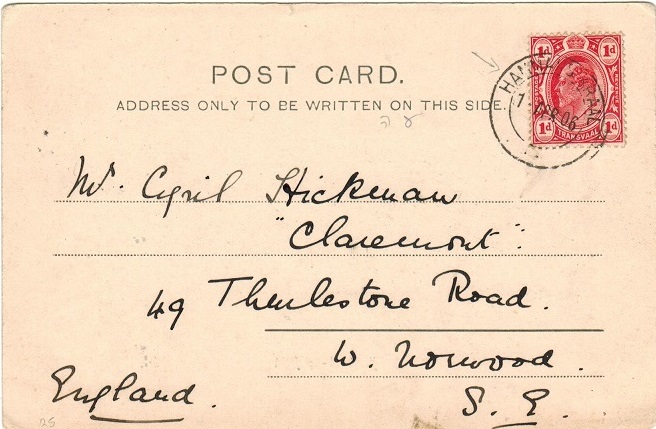 POST CARD.
ADDRESS ONLY TO BE WRITTEN ON THIS SIDE.
1d 1d
1d 1d
TRANSVAAL
AP 06
Mr. Cyril Hickman
"Claremont".
49 Thurlestone Road.
W. Norwood.
England. S. E.
25